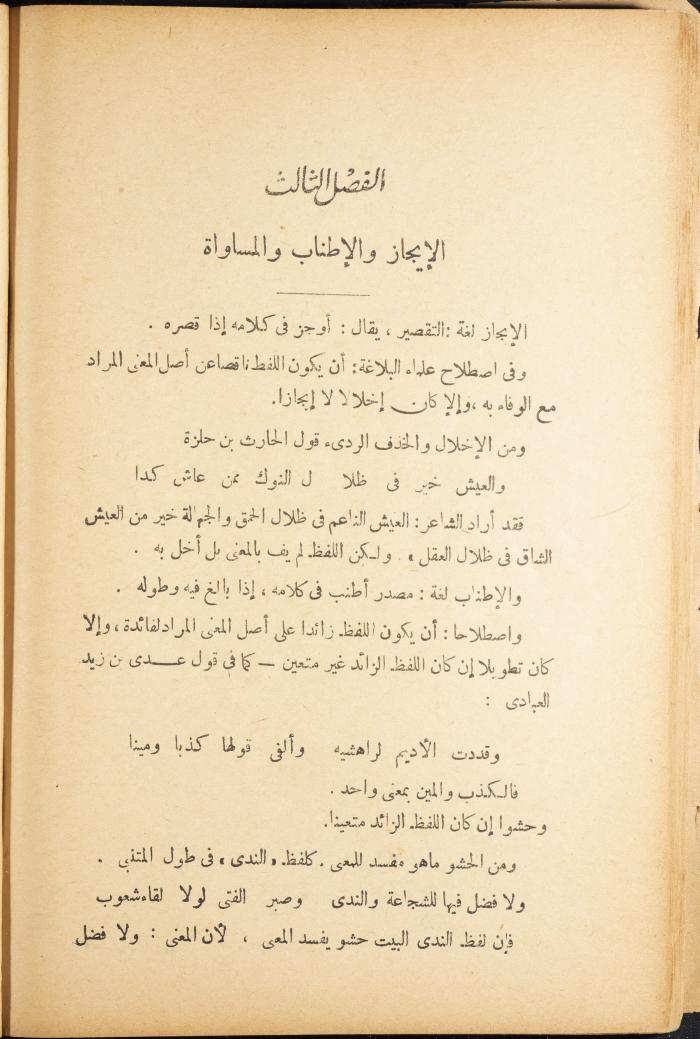 الفصل الثالث
الإيجاز والإطناب والمساواة
الإيجاز لغة : التقصير ، يقال : أوجز فى كلامه إذا قصره .
وفى اصطلاح علماء البلاغة : أن يكون اللفظ ناقصا عن أصل المعنى المراد
مع الوفاء به ، وإلا كان إخلالا لا إيجازا .
ومن الإخلال والحذف الردىء قول الحارث بن حلزة
والعيش خير فى ظلا ل النوك ممن عاش كدا
فقد أراد الشاعر : العيش الناعم فى ظلال الحمق والجهالة خير من العيش
الشاق فى ظلال العقل ، ولكن اللفظ لم يف بالمعنى بل أخل به .
والإطناب لغة : مصدر أطنب فى كلامه ، إذا بالغ فيه وطوله .
واصطلاحا : أن يكون اللفظ زائدا على أصل المعنى المراد لفائدة ، وإلا
كان تطويلا إن كان اللفظ الزائد غير متعين – كما فى قول عدى بن زيد
العبادى :
وقددت الأديم لراهشيه وألفى قولها كذبا ومينا
فالكذب والمين بمعنى واحد .
وحشوا إن كان اللفظ الزائد متعينا .
ومن الحشو ماهو مفسد للمعنى . كلفظ « الندى » فى طول المتنبى .
ولا فضل فيها للشجاعة والندى وصبر الفتى لولا لقاء شعوب
فإن لفظ الندى البيت حشو يفسد المعنى ، لأن المعنى : ولا فضل